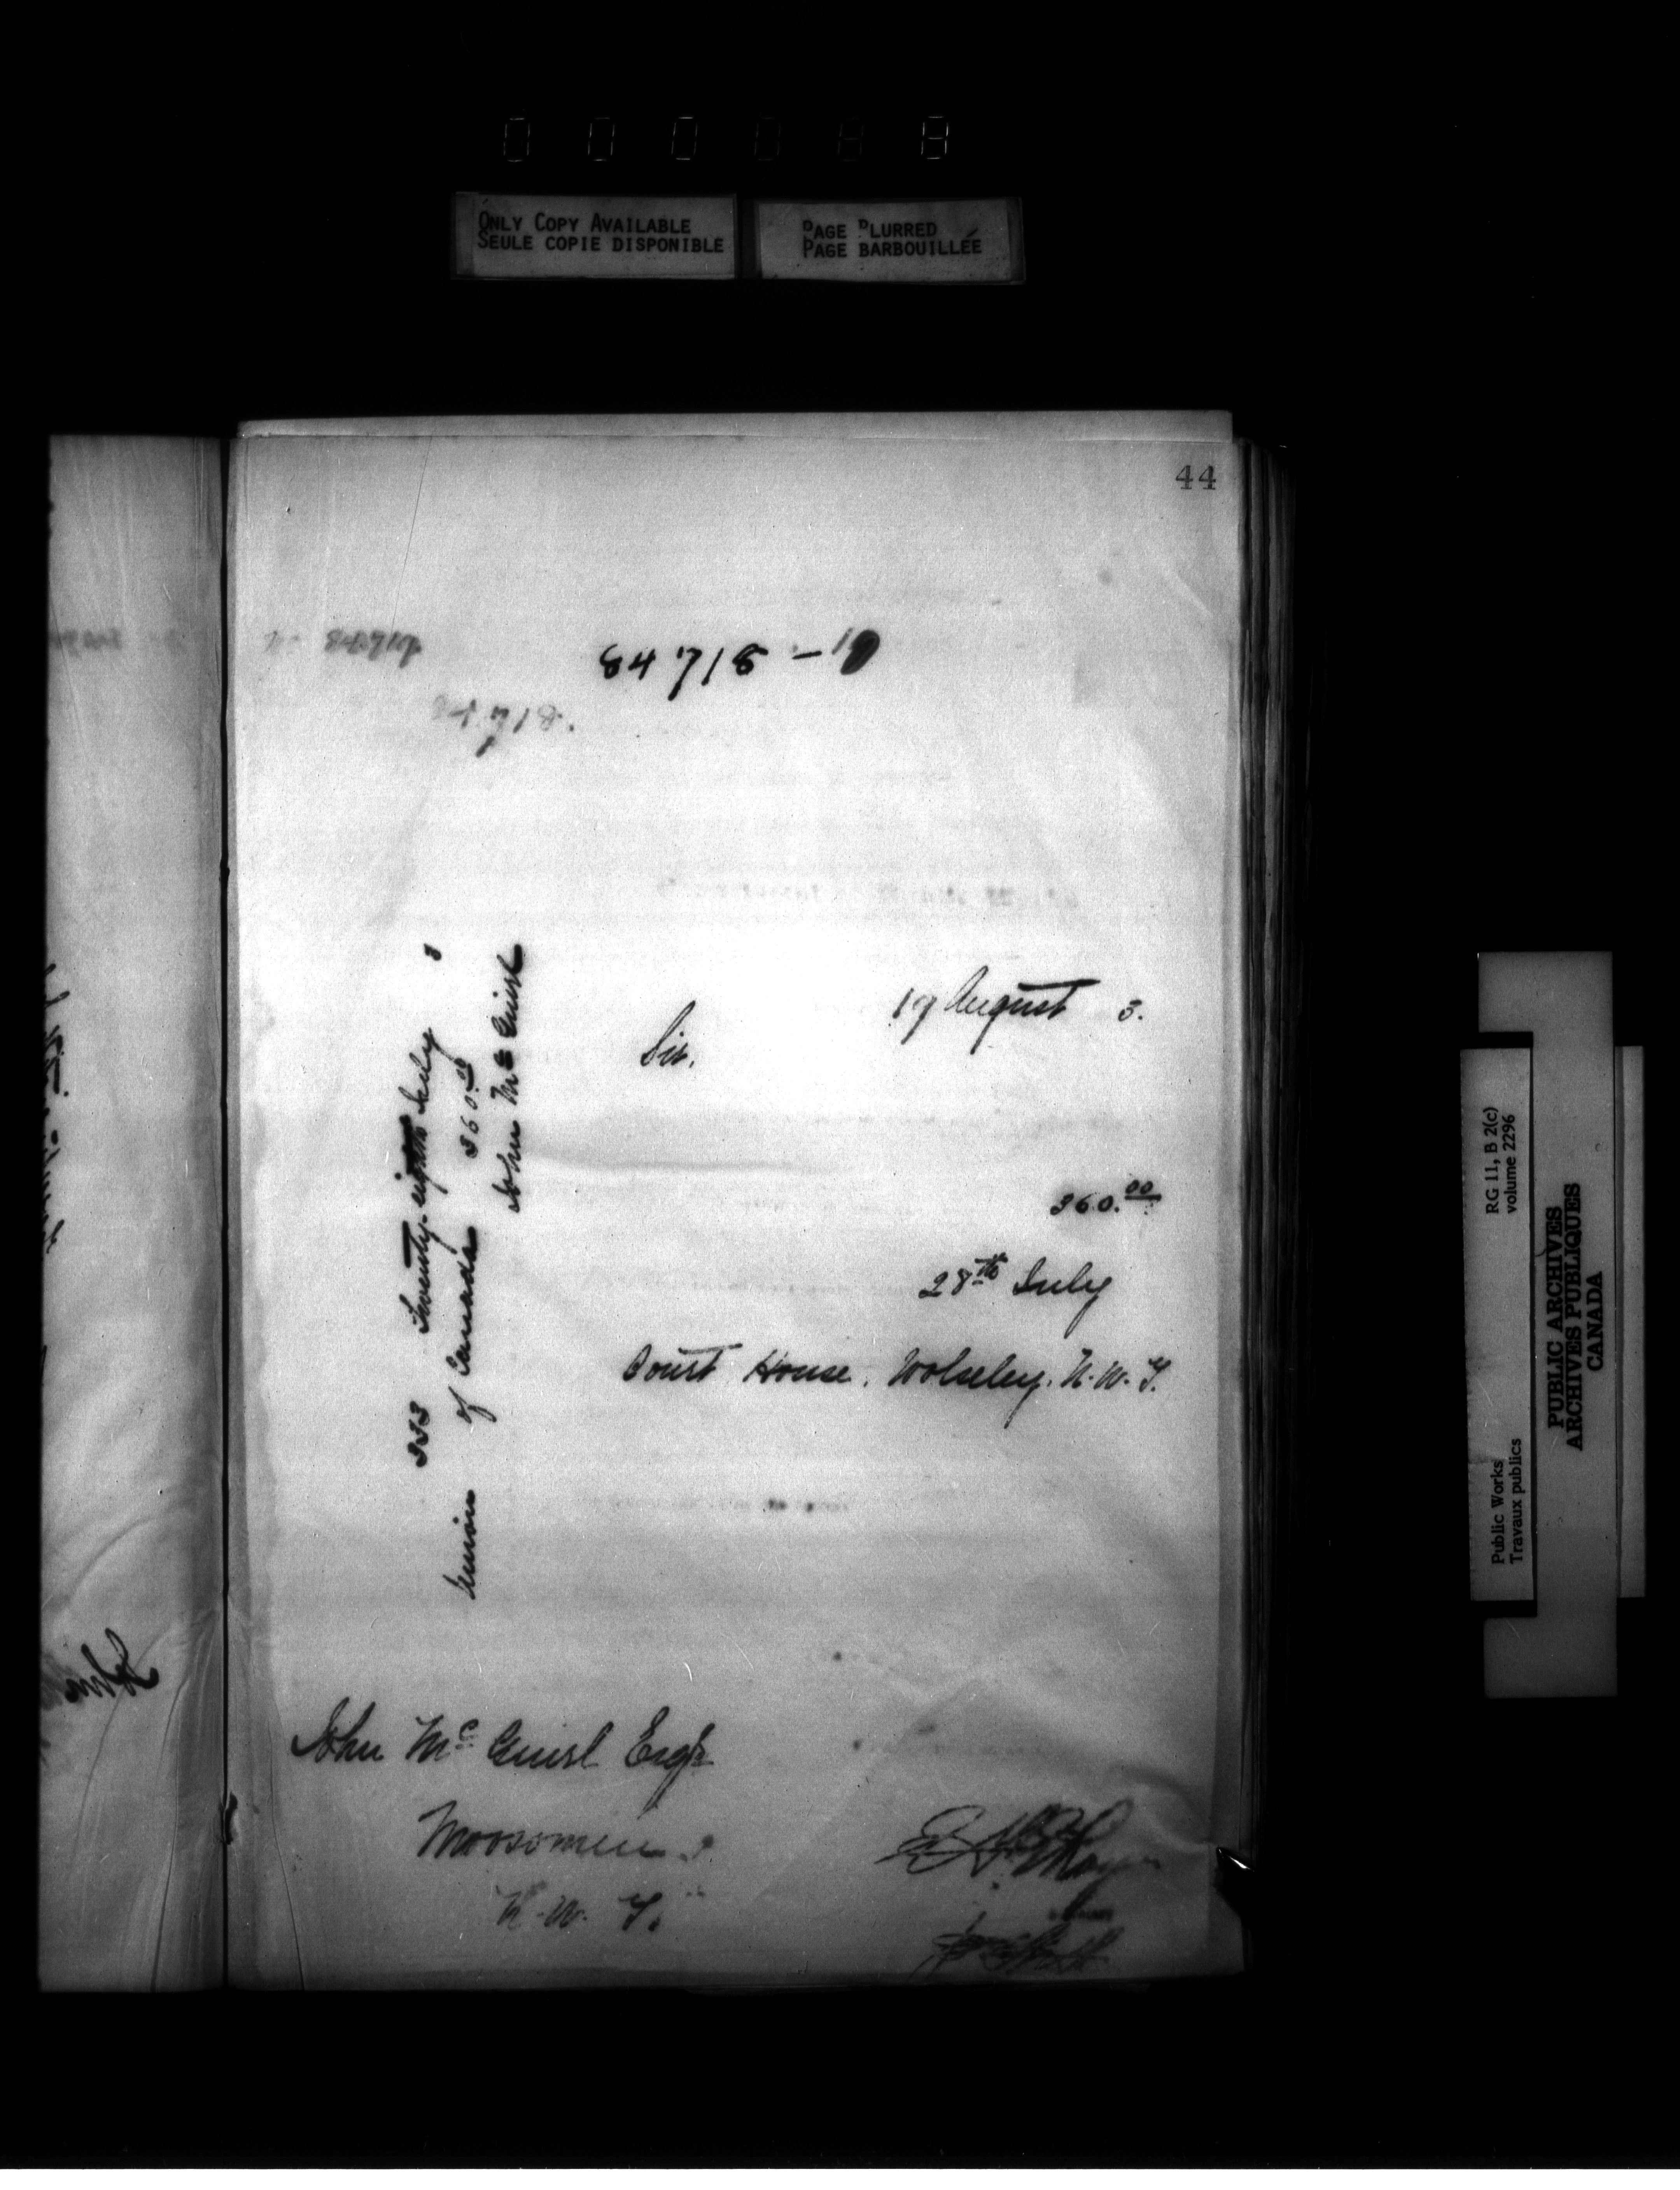 0 0 0 0 8 8
ONLY COPY AVAILABLE
SEULE COPIE DISPONIBLE
PAGE BLURRED
PAGE BARBOUILLÉE
44
84718 -
84718
17 August 3.
Sir.
360.00
28th July
Court House. Wolseley. N.W.T.
333 Twenty-eighth July 3
Union of Canada 360.00
John Mc Guirl
John Mc Guirl Esqr
Moosomin
N.W.T.
RG 11, B 2(c)
volume 2296
Public Works
Travaux publics
PUBLIC ARCHIVES
ARCHIVES PUBLIQUES
CANADA